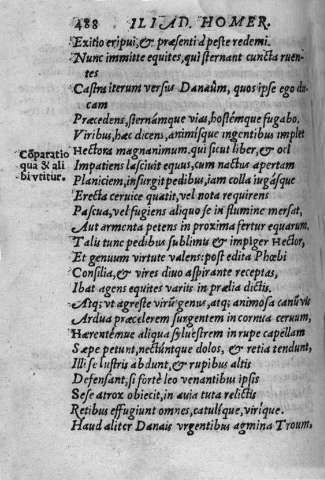 488 ILIAD. HOMER.
Exitio eripui, & præsenti d peste redemi.
Nunc immitte equites, qui sternant cuncta ruen-
tes
Castra iterum versus Danaûm, quos ipse ego du-
cam
Præcedens, sternámque vias, hostémque fugabo.
Viribus, hæc dicens, animísque ingentibus implet
Hectora magnanimum. qui sicut liber, & ocî
Impatiens lasciuit equus, cum nactus apertam
Planiciem, insurgit pedibus, iam colla iugásque
Erecta ceruice quatit, vel nota requirens
Pascua, vel fugiens aliquo se in flumine mersat,
Aut armenta petens in proxima fertur equarum,
Talis tunc pedibus sublimis & impiger Hector,
Et genuum virtute valens: post edita Phœbi
Consilia, & vires diuo aspirante receptas,
Ibat agens equites variis in prælia dictis.
Atq; vt agreste virûm genus, atq; animosa canũ vis
Ardua præcelerem surgentem in cornua ceruum,
Hærentémue aliqua syluestrem in rupe capellam
Sæpe petunt, nectúntque dolos, & retia tendunt,
Illi se lustris abdunt, & rupibus altis
Defensant, si fortè leo venantibus ipsis
Sese atrox obiecit, in auia tuta relictis
Retibus effugiunt omnes, catulíque, viríque.
Haud aliter Danais vrgentibus agmina Troum,
Cõparatio
qua & ali
bi vtitur.